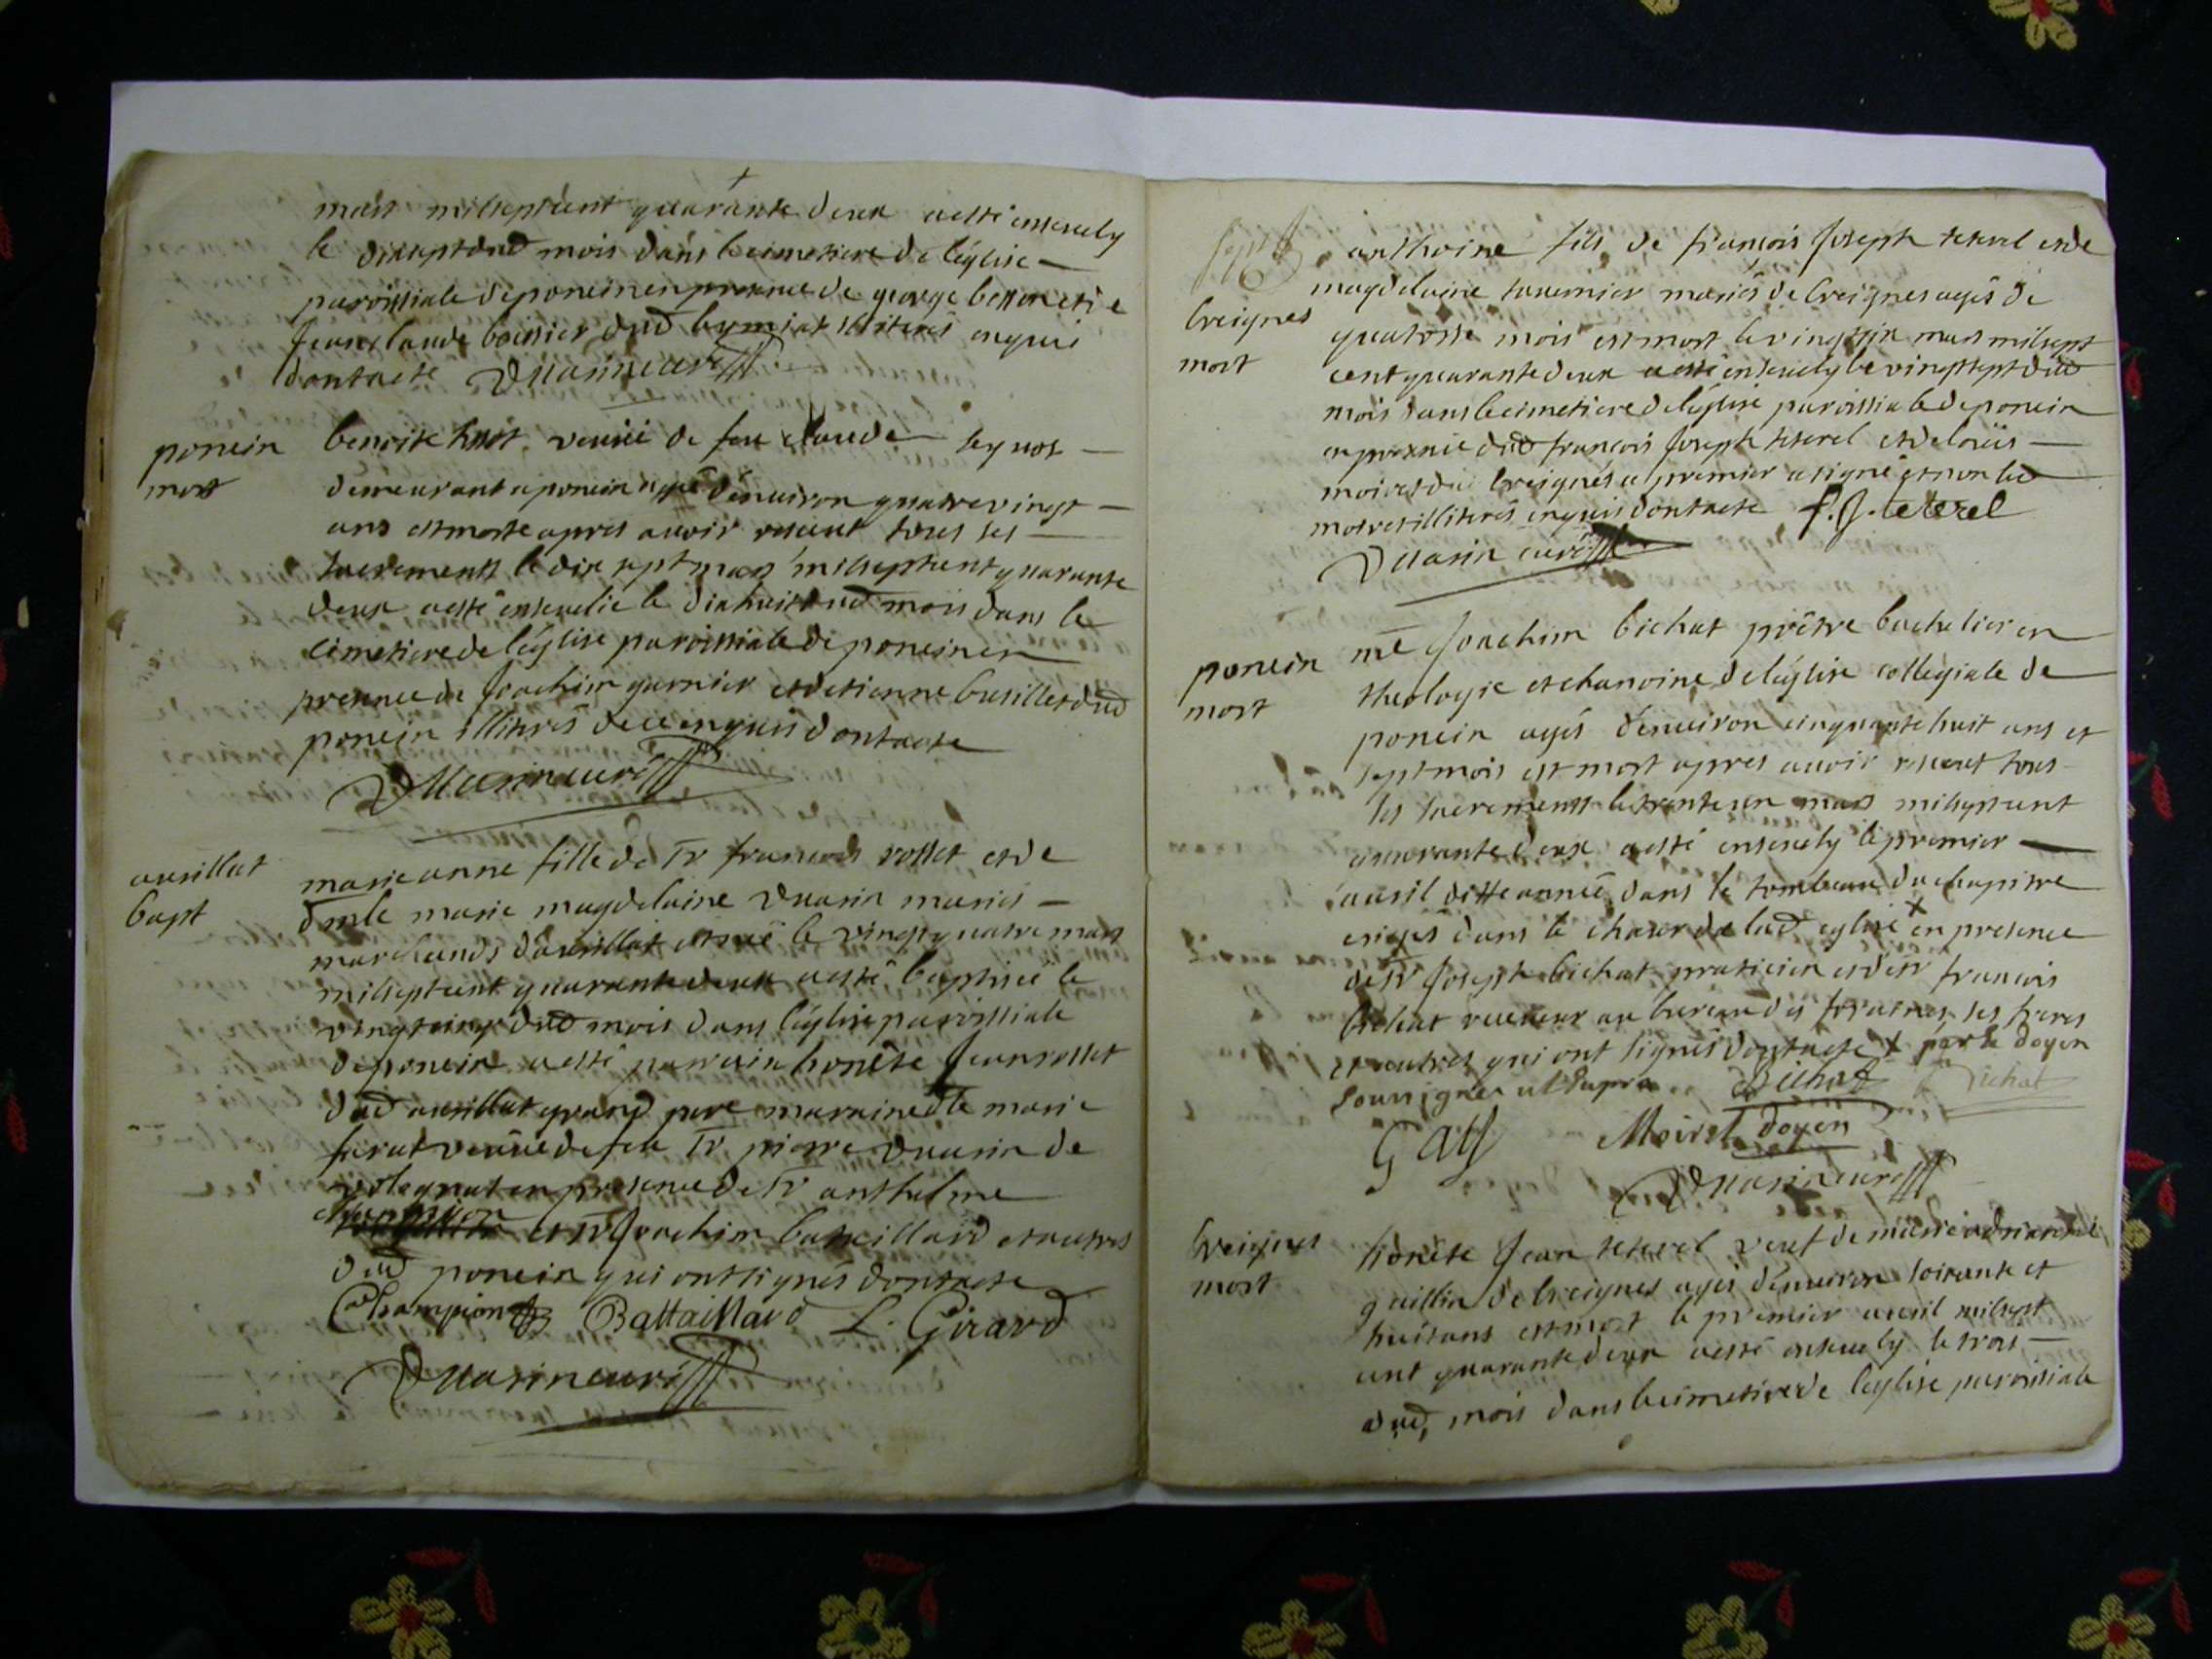 mars milseptcent quarante deux aesté ensevely
le dixsept dud mois dans le cimetiere de l'église
paroissiale de poncin en presence de george et de
Jean claude boissier dud illiterés enquis
dont acte Duarin curé
poncin
mort
benoite veuve de feu claude
demeurant a poncin agée d'environ quatrevingt
ans est morte apres avoir receut tous ses
sacrements le dix sept mars milseptcent quarante
deux aesté ensevelie le dixhuit dud mois dans le
cimetiere de l'église paroissiale de poncin en
presence de Joachim garnier et detienne busillet dud
poncin illiterés de ce enquis dont acte
Duarin curé
avrillat
bapt
marie anne fille de sr francois rosset et de
dmle marie magdelaine Duarin mariés
marchands d'avrillat est né le vingtquatre mars
milseptcent quarante deux aesté baptisée le
vingtcinq dud mois dans l'église paroissiale
de poncin aesté parrain honête Jean rosset
dud avrillat grand pere maraine dlle marie
veuve de feu sr pierre duarin de
volognat en presence de sr anthelme
champion et sr Joachim battaillard et autres
dud poncin qui ont signés dont acte
Champion Battaillard L. Girard
Duarin curé
breignes
mort
anthoine fils de francois Joseph teterel et de
magdelaine tavernier mariés de breignes agés de
quatorse mois est mort le vingtsix mars milsept
cent quarante deux aesté ensevely le vingtsept dud
mois dans le cimetiere de l'église paroissiale de poncin
en presence dud francois Joseph teterel et de loüis
moiret du breignes le premier a signé et non led
moiret illiterés enquis dont acte f. J. teterel
Duarin curé
poncin
mort
me Joachim bichat prêtre bachelier en
theologie et chanoine de l'église collegiale de
poncin agés d'environ cinquante huit ans et
sept mois est mort apres avoir receut tous
les sacrements le trente un mars milseptcent
quarante deux aesté ensevely le premier
avril ditte année dans le tombeau du chapitre
erigés dans le choeur de lad eglise x en presence
de sr Joseph bichat praticien et de sr francois
bichat receveur au bureau des ses freres
et autres qui ont signés dont acte x par le doyen
soussigner ut supra Bichat Bichat
Moiret doyen
Duarin curé
breignes
mort
honête Jean teterel veuf de marie
guillin de breignes agés d'environ soixante et
huit ans est mort le premier avril milsept
cent quarante deux aesté ensevely le trois
dud mois dans le cimetiere de l'eglise paroissiale